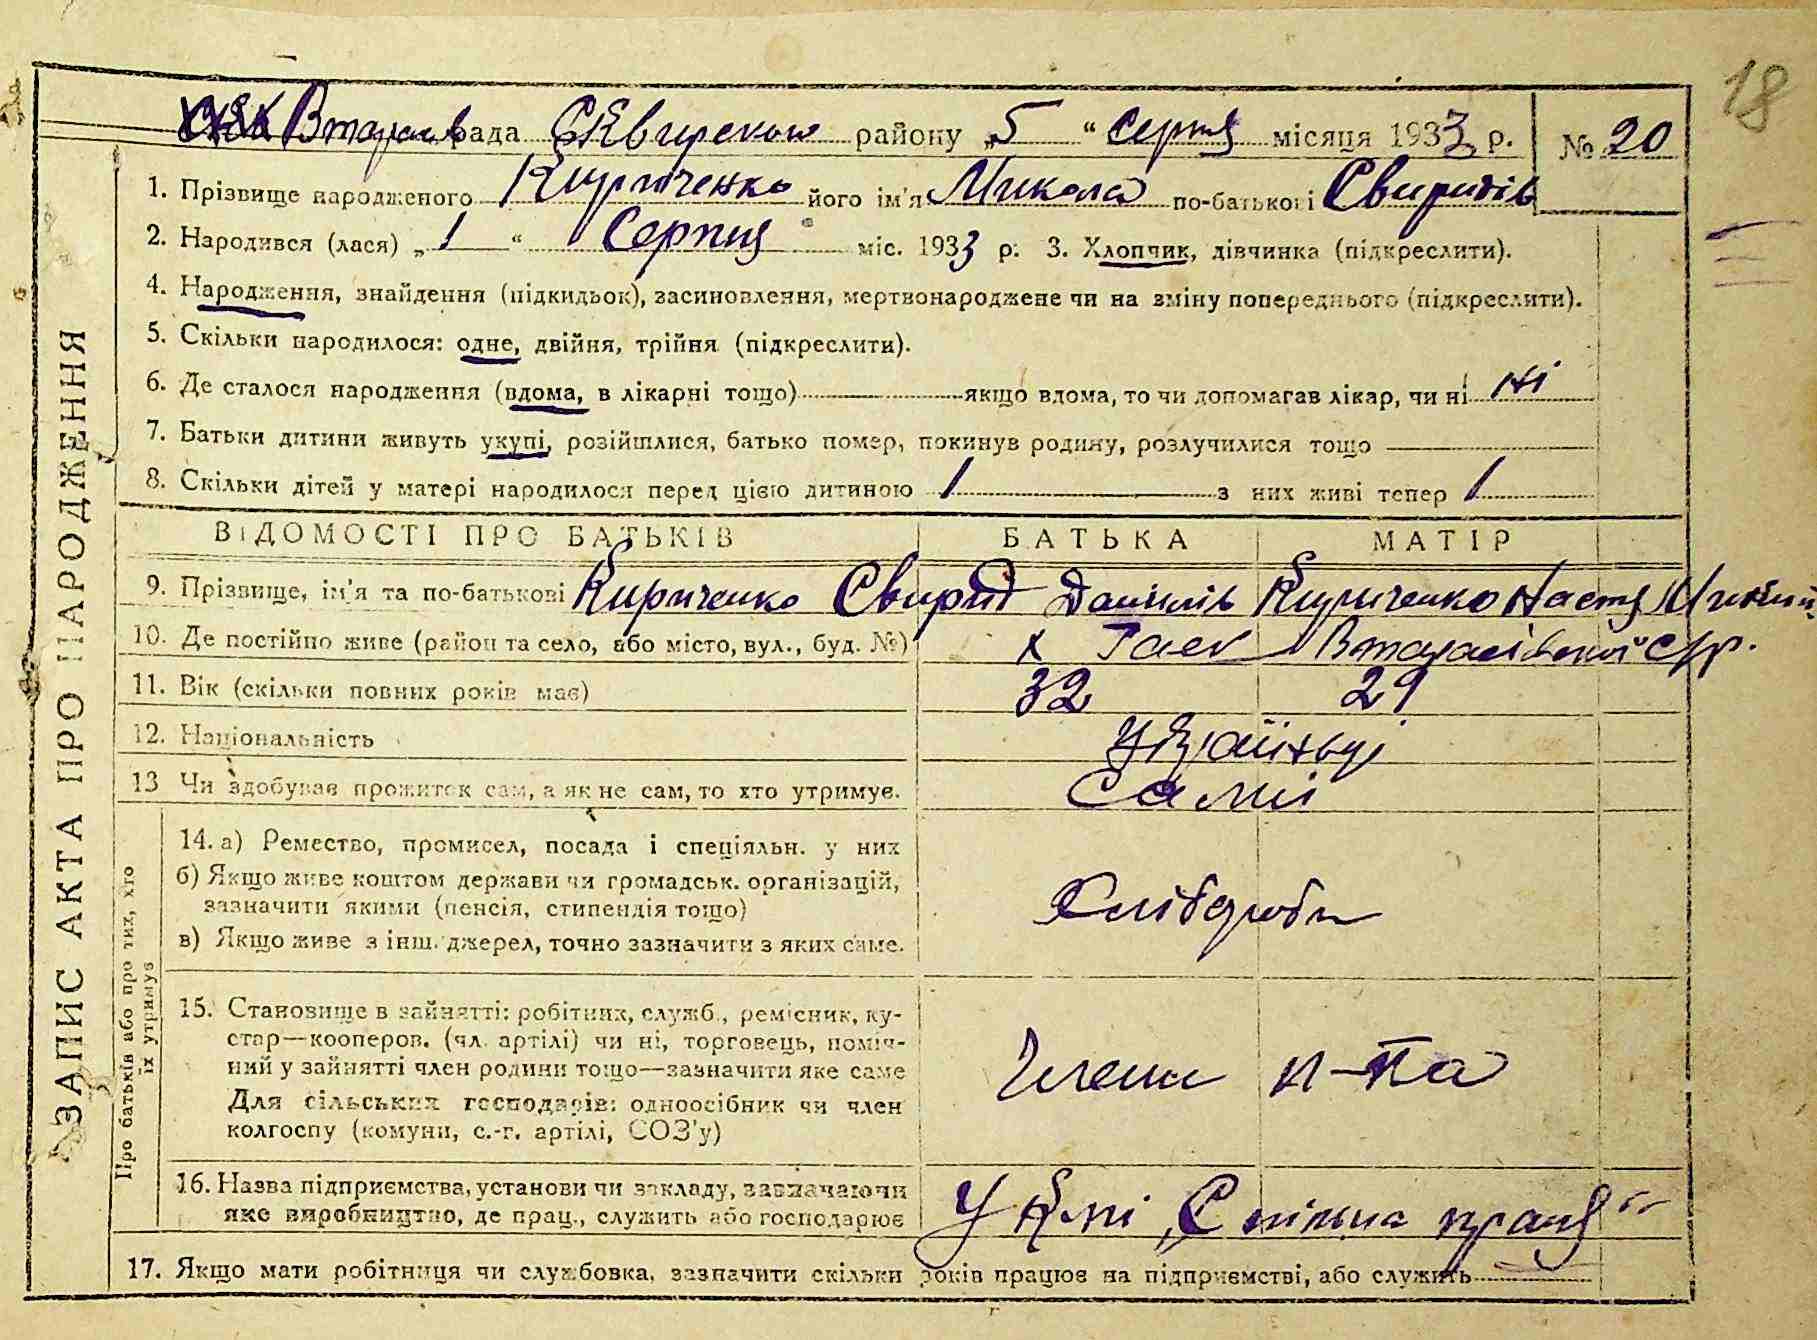 18
рада Сквирского району „5“ Серпня місяця 1933 р. № 20
1. Прізвище народженого Кириченко його ім'я Микола по-батькові Свиридів
2. Народився (лася) „1“ Серпня міс. 1933 р. 3. Хлопчик, дівчинка (підкреслити).
4. Народження, знайдення (підкидьок), засиновлення, мертвонароджене чи на зміну попереднього (підкреслити).
5. Скільки народилося: одне, двійня, трійня (підкреслити).
6. Де сталося народження (вдома, в лікарні тощо) якщо вдома, то чи допомагав лікар, чи ні ні
7. Батьки дитини живуть укупі, розійшлися, батько помер, покинув родину, розлучилися тощо
8. Скільки дітей у матері народилося перед цією дитиною 1 з них живі тепер 1
ВІДОМОСТІ ПРО БАТЬКІВ БАТЬКА МАТІР
9. Прізвище, ім'я та по-батькові Кириченко Свирид Данилів Кириченко Настя
10. Де постійно живе (район та село, або місто, вул., буд. №) х Гаєк
11. Вік (скільки повних років має) 32 29
12. Національність Українці
13 Чи здобував прожиток сам, а як не сам, то хто утримує. Самі
14. а) Ремество, промисел, посада і спеціяльн. у них
б) Якщо живе коштом держави чи громадськ. організацій,
зазначити якими (пенсія, стипендія тощо)
в) Якщо живе з інш. джерел, точно зазначити з яких саме.
Хлібороби
15. Становище в зайнятті: робітник, служб., ремісник, ку-
стар—кооперов. (чл. артілі) чи ні, торговець, поміч-
ний у зайнятті член родини тощо—зазначити яке саме
Для сільських господарів: одноосібник чи член
колгоспу (комуни, с.-г. артілі, СОЗ'у)
Члени к-па
16. Назва підприємства, установи чи закладу, зазначаючи
яке виробництво, де прац., служить або господарює
У к-пі „Спільна праця“
17. Якщо мати робітниця чи службовка, зазначити скільки років працює на підприємстві, або служить
ЗАПИС АКТА ПРО НАРОДЖЕННЯ
Про батьків або про тих, хто
їх утримує